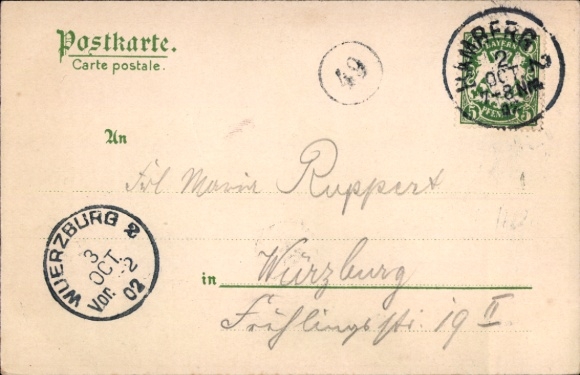 Postkarte.
Carte postale.
49
BAMBERG 2
2
OCT.
7-8 Nm
02
BAYERN
5 PFENNIG 5
An
Frl Maria Ruppert
in Würzburg
Frühlingsstr. 19 II
WUERZBURG 2
3
OCT.
Vor. 2
02